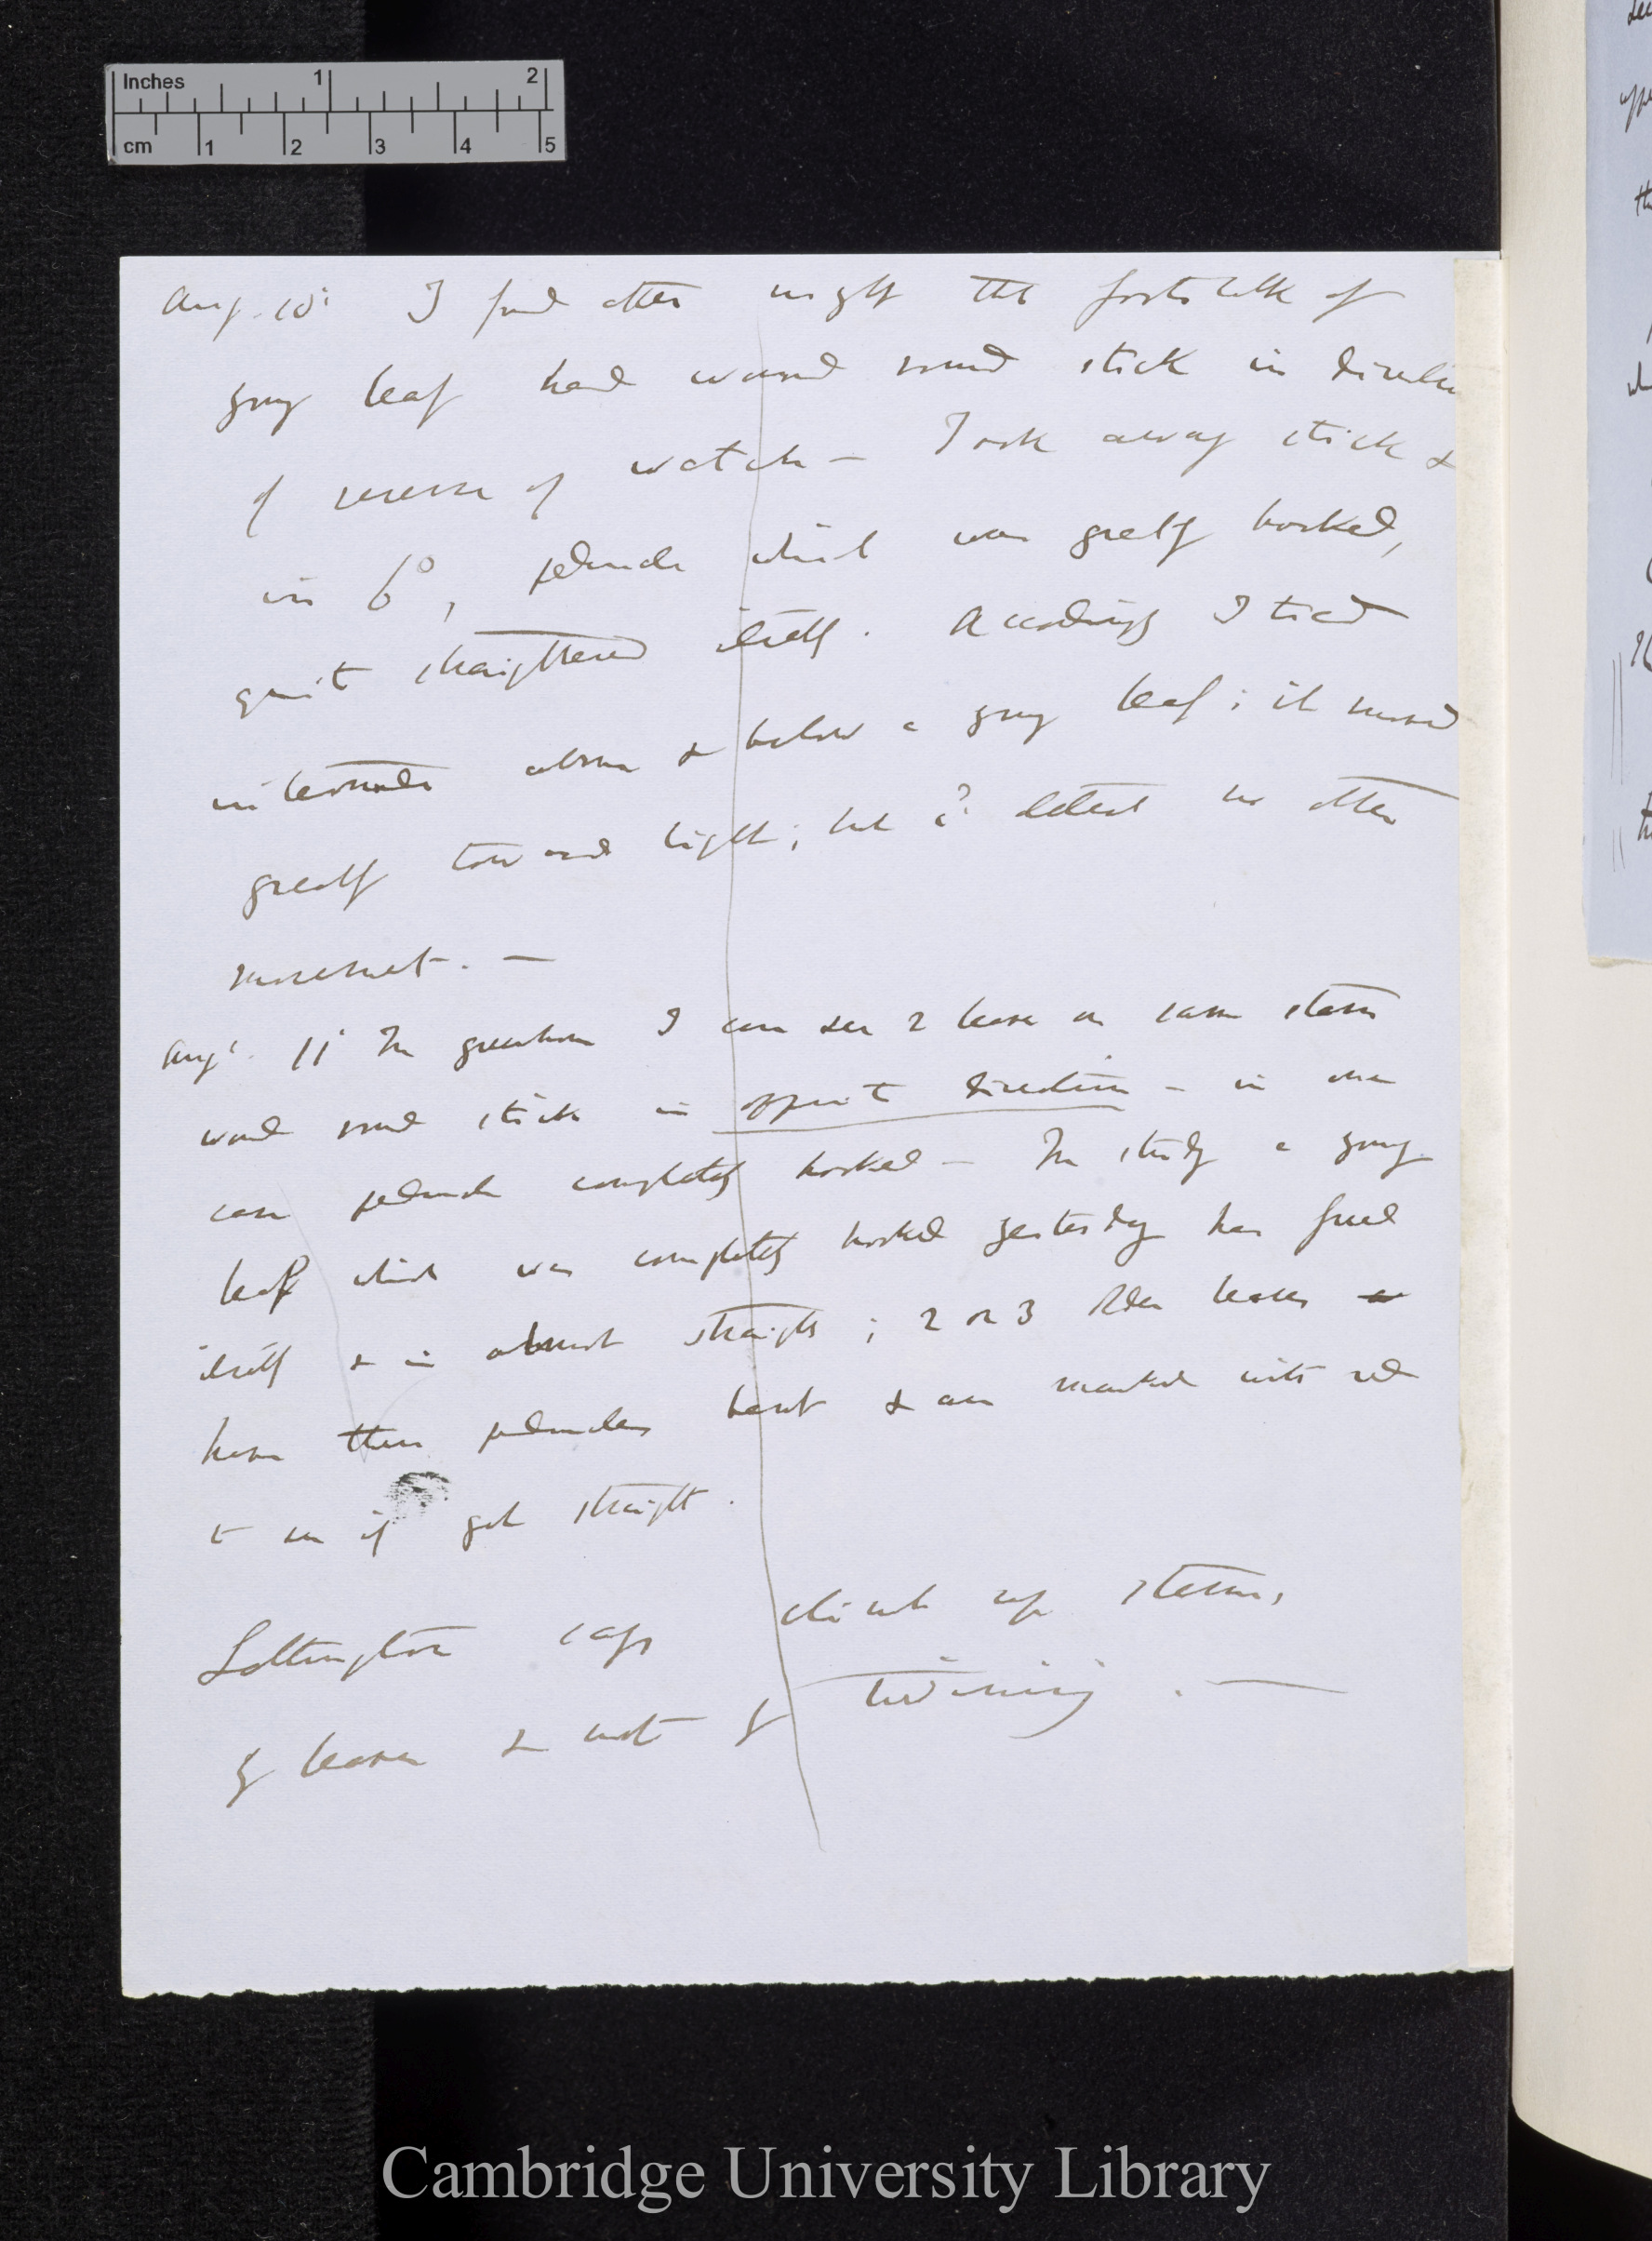 Inches 1 2
cm 1 2 3 4 5
Aug. 10' I find after night the footstalk of
young leaf had wound round stick in direction
of reverse of watch — I took away stick &
in 6°, peduncle which was greatly hooked,
quite straightened itself. Accordingly I tied
internodes above & below a young leaf; it moved
greatly toward light; but cd detect no other
movement. —
Aug'. 11' In greenhouse I can see 2 leaves on same stem
wound round stick in opposite directions — in one
case peduncle completely hooked — In study a young
leaf which was completely hooked yesterday has freed
itself & is almost straight; 2 or 3 older leaves
have their peduncles bent & are marked with red
to see if get straight.
says climb up stems,
by leaves & not by twining. —
Cambridge University Library